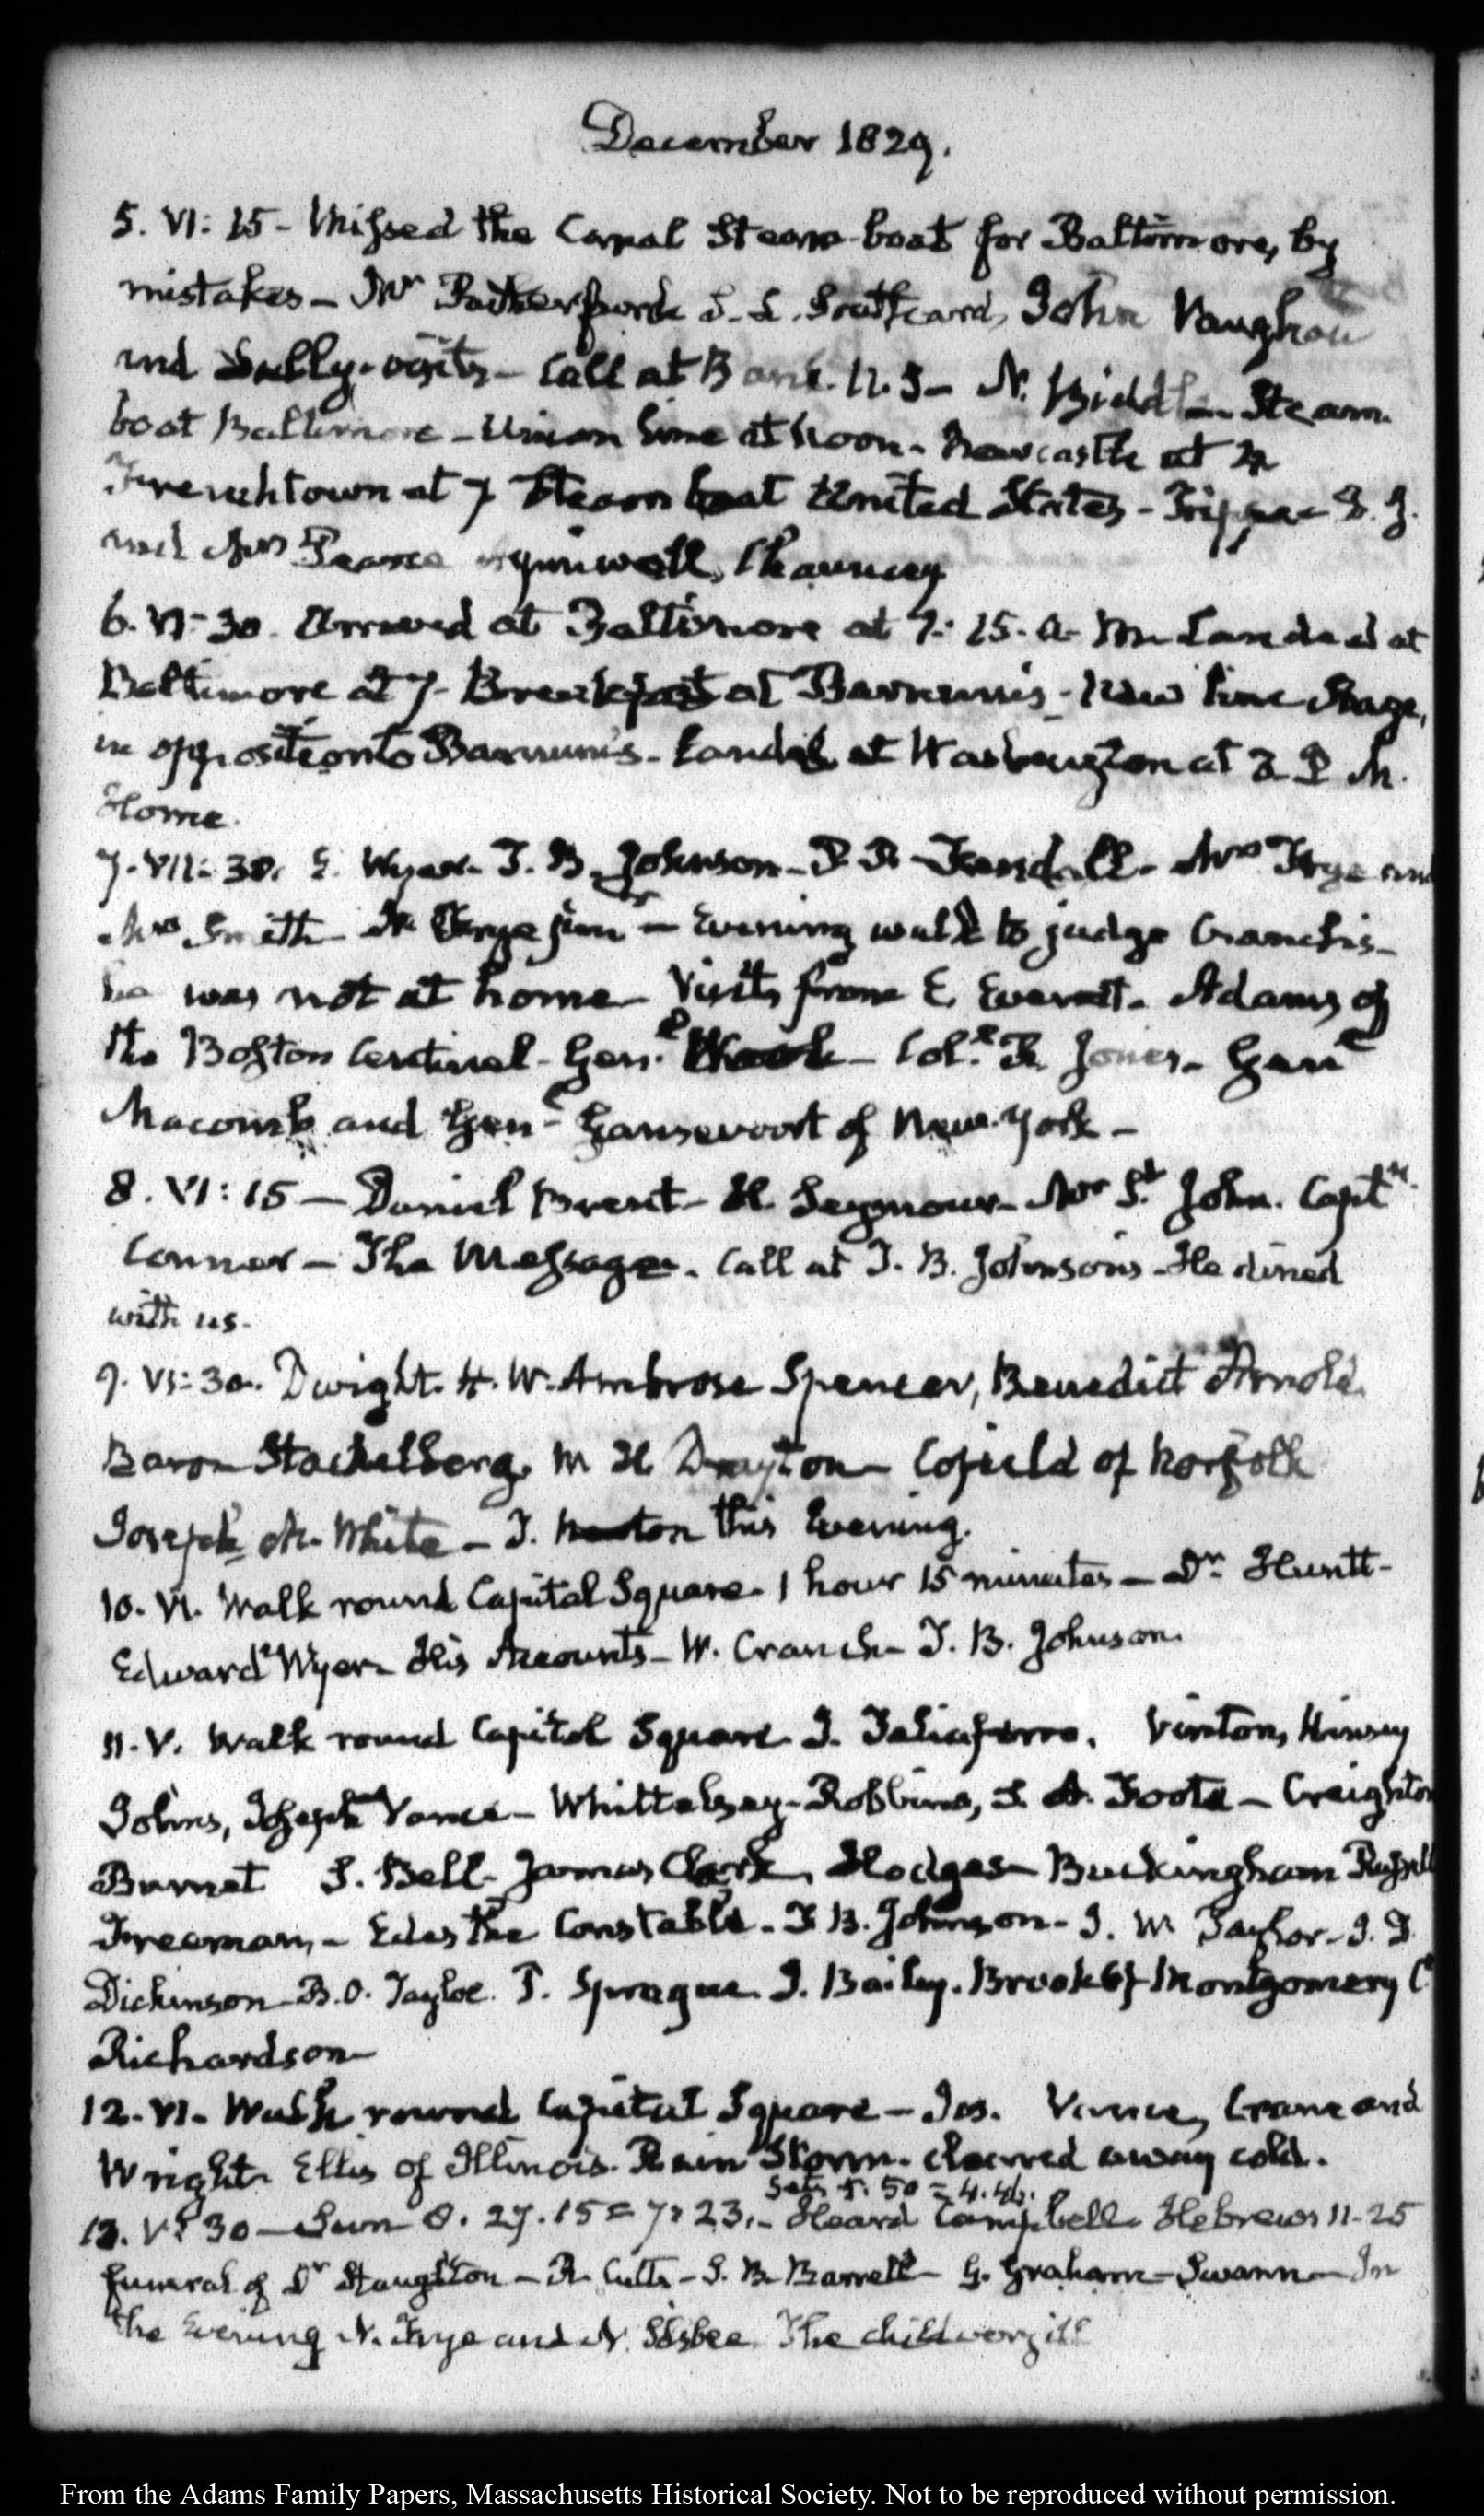 December 1829.
5. VI: 15 - Missed the Canal Steam-boat for Baltimore, by
mistake - Mr S. L. Southard, John Vaughan
and Sully. visits - Call at Bank. U.S - N. Biddle - Steam-
boat Baltimore - Union line at Noon - Newcastle at 4
Frenchtown at 7 Steam boat United States - Trippe -
and Mrs Pearce Chauncey
6. VI: 30. Arrived at Baltimore at . 15. A. M. Landed at
Baltimore at 7. Breakfast at Barnum's - New line Stage,
in opposition to Barnum's. Landed at Washington at 3 P. M.
Home.
7. VII: 30. E. Wyer. T. B. Johnson - P. R. Fendall - Mrs Frye and
Mrs Smith - N. Frye junr - Evening walk to judge Cranch's -
he was not at home - Visits from E. Everett. Adams of
the Boston Centinel - Genl. - Coll. R. Jones - Genl
Macomb and Genl Gansevoort of New-York -
8. VI: 15 - Daniel Brent - H. Seymour - Mr St John. Captn.
Conner - The Message. Call at T. B. Johnson's - He dined
with us.
9. VI: 30. Dwight. H. W. Ambrose Spencer, Benedict Arnold.
Baron Stackelberg. W H Drayton - Cofield of Norfolk
Joseph M. White - T. Newton this Evening.
10. VI. Walk round Capitol Square. 1 hour 15 minutes - Dr. Huntt -
Edward Wyer - His Accounts - W. Cranch - T. B. Johnson.
11. V. Walk round Capitol Square - J. Taliaferro. Vinton, Kinsey
Johns, Joseph Vance - Whittelsey - Robbins, S. A. Foote - Creighton
Burnet S. Bell - James Clark, Hodges - Buckingham Russell
Freeman, - Edes the Constable - T B. Johnson - J. W Taylor - J. D
Dickinson B. O. Tayloe. P. Sprague J. Bailey. Brooke of Montgomery C
Richardson -
12. VI. Walk round Capitol Square - Jos. Vance, Crane and
Wright. Ellis of Illinois. Rain Storm. cleared away cold.
Sets 5. 50 = 4.
13. V: 30 - Sun 8. 27. 15 = 7: 23. - Heard Campbell. Hebrews 11. 25
funeral of Dr Staughton - R. Cutts - S. B. Barrell - G. Graham - Swann - In
the Evening N. Frye and N. The child very ill
From the Adams Family Papers, Massachusetts Historical Society. Not to be reproduced without permission.